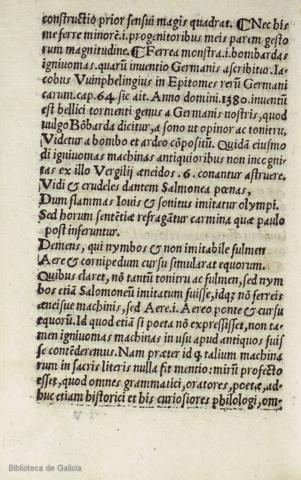 constructio prior sensui magis quadrat. ¶Nec his
me ferre minorē.i.progenitoribus meis parem gesto
rum magnitudine. ¶Ferrea monstra.i.bombardas
igniuomas.quarū inuentio Germanis ascribitur.Ia-
cobus Vuinphelingius in Epitomes rerū Germani
carum.cap.64.sic ait.Anno domini.1380.inuentū
est bellici tormenti genus a Germanis nostris,quod
vulgo Bōbarda dicitur,a sono ut opinor ac tonitru,
Videtur a bombo et ardeo cōpositū. Quidā eiusmo
di igniuomas machinas antiquioribus non incogni
tas ex illo Vergilij æneidos .6.conantur astruere,
Vidi & crudeles dantem Salmonea pœnas,
Dum flammas Iouis & sonitus imitatur olympi.
Sed horum sentētiæ refragātur carmina quæ paulo
post inseruntur.
Demens, qui nymbos & non imitabile fulmen
Aere & cornipedum cursu simularat equorum.
Quibus claret, nō tantū tonitru ac fulmen,sed nym
bos etiā Salomoneū imitatum fuisse,idqȝ nō ferreis
æneisue machinis,sed Aere.i.Aereo ponte & cursu
equorū.Id quod etiā si poeta nō expressisset,non ta-
men igniuomas machinas in usu apud antiquos fuis
se contēderemus.Nam præter id q̃ talium machina
rum in sacris literis nulla fit mentio:mirū profecto
esset,quod omnes grammatici,oratores,poetæ,ad-
huc etiam historici et his curiosiores philologi,om-
Biblioteca de Galicia